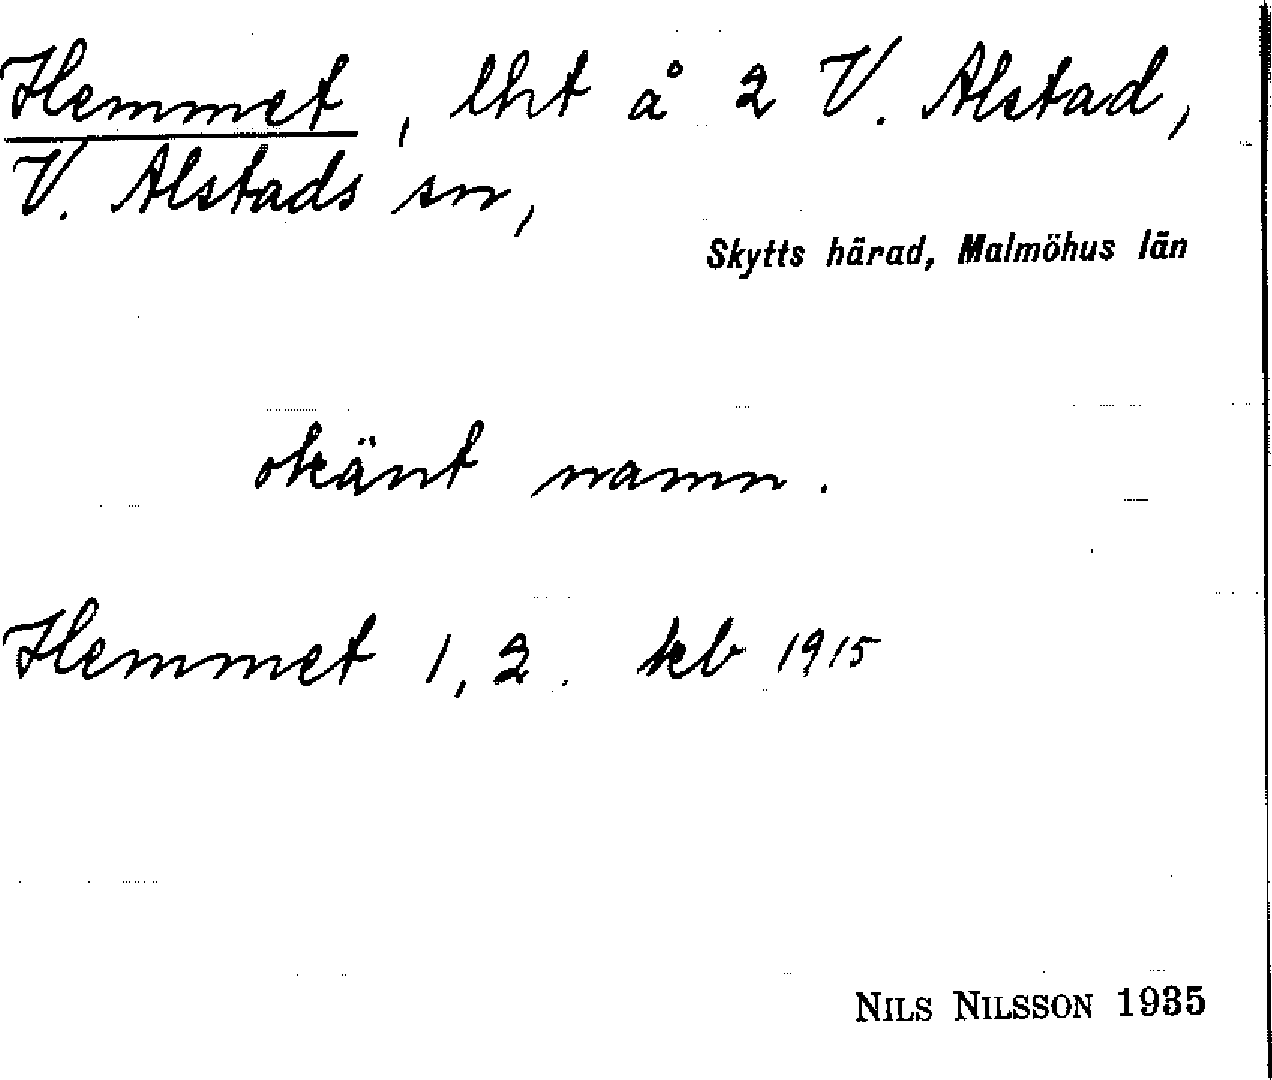 Hemmet, lht å 2 V. Alstad,
V. Alstads sn,
Skytts härad, Malmöhus län
okänt namn.
Hemmet 1, 2. kb 1915
NILS NILSSON 1935